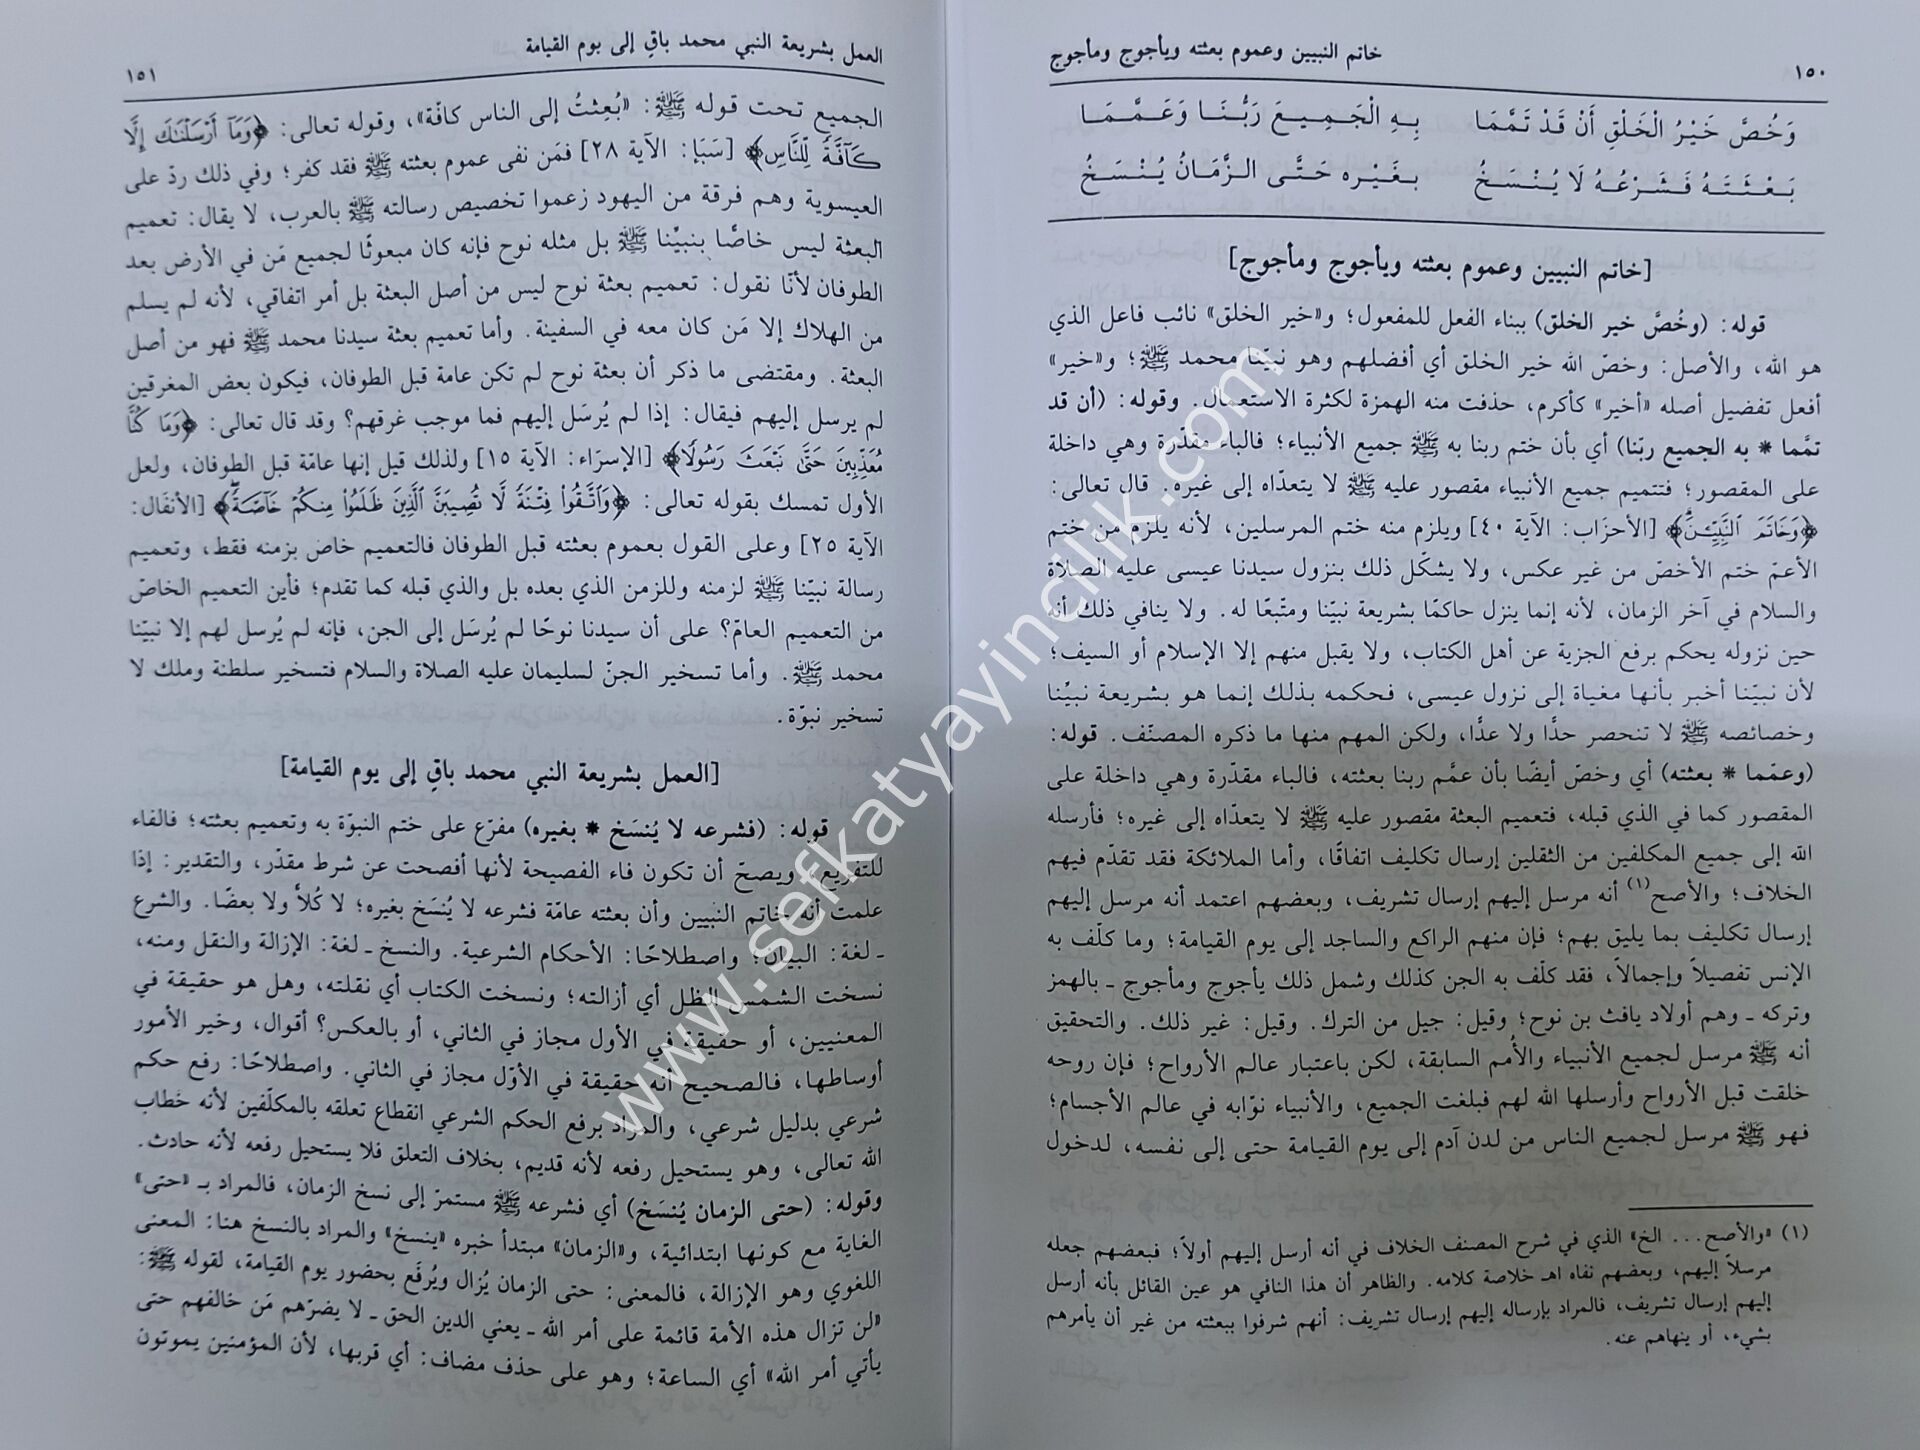 خاتم النبيين وعموم بعثته ويأجوج ومأجوج
١٥٠
وَخُصَّ خَيْرُ الْخَلْقِ أَنْ قَدْ تَمَّمَا بِهِ الْجَمِيعَ رَبُّنَا وَعَمَّمَا
بَعْثَتَهُ فَشَرْعُهُ لَا يُنْسَخُ بِغَيْرِهِ حَتَّى الزَّمَانُ يُنْسَخُ
[خاتم النبيين وعموم بعثته ويأجوج ومأجوج]
قوله: (وخُصَّ خير الخلق) ببناء الفعل للمفعول؛ و«خير الخلق» نائب فاعل الذي
هو الله، والأصل: وخصّ الله خير الخلق أي أفضلهم وهو نبيّنا محمد ﷺ؛ و«خير»
أفعل تفضيل أصله «أخير» كأكرم، حذفت منه الهمزة لكثرة الاستعمال. وقوله: (أن قد
تمَّما * به الجميع ربّنا) أي بأن ختم ربنا به ﷺ جميع الأنبياء؛ فالباء مقدّرة وهي داخلة
على المقصور؛ فتتميم جميع الأنبياء مقصور عليه ﷺ لا يتعدّاه إلى غيره. قال تعالى:
﴿وَخَاتَمَ النَّبِيِّـنَ﴾ [الأحزَاب: الآية ٤٠] ويلزم منه ختم المرسلين، لأنه يلزم من ختم
الأعمّ ختم الأخصّ من غير عكس، ولا يشكّل ذلك بنزول سيدنا عيسى عليه الصلاة
والسلام في آخر الزمان، لأنه إنما ينزل حاكمًا بشريعة نبيّنا ومتّبعًا له. ولا ينافي ذلك أنه
حين نزوله يحكم برفع الجزية عن أهل الكتاب، ولا يقبل منهم إلا الإسلام أو السيف؛
لأن نبيّنا أخبر بأنها مغياة إلى نزول عيسى، فحكمه بذلك إنما هو بشريعة نبيِّنا
وخصائصه ﷺ لا تنحصر حدًّا ولا عدًّا، ولكن المهم منها ما ذكره المصنّف. قوله:
(وعمّما * بعثته) أي وخصّ أيضًا بأن عمَّم ربنا بعثته، فالباء مقدّرة وهي داخلة على
المقصور كما في الذي قبله، فتعميم البعثة مقصور عليه ﷺ لا يتعدّاه إلى غيره؛ فأرسله
الله إلى جميع المكلفين من الثقلين إرسال تكليف اتفاقًا، وأما الملائكة فقد تقدّم فيهم
الخلاف؛ والأصح(١) أنه مرسل إليهم إرسال تشريف، وبعضهم اعتمد أنه مرسل إليهم
إرسال تكليف بما يليق بهم؛ فإن منهم الراكع والساجد إلى يوم القيامة؛ وما كلّف به
الإنس تفصيلاً وإجمالاً، فقد كلّف به الجن كذلك وشمل ذلك يأجوج ومأجوج ـ بالهمز
وتركه ـ وهم أولاد يافث بن نوح؛ وقيل: جيل من الترك. وقيل: غير ذلك. والتحقيق
أنه ﷺ مرسل لجميع الأنبياء والأُمم السابقة، لكن باعتبار عالم الأرواح؛ فإن روحه
خلقت قبل الأرواح وأرسلها الله لهم فبلغت الجميع، والأنبياء نوّابه في عالم الأجسام؛
فهو ﷺ مرسل لجميع الناس من لدن آدم إلى يوم القيامة حتى إلى نفسه، لدخول
(١) «والأصح... الخ» الذي في شرح المصنف الخلاف في أنه أرسل إليهم أولاً؛ فبعضهم جعله
مرسلاً إليهم، وبعضهم نفاه اهـ خلاصة كلامه. والظاهر أن هذا النافي هو عين القائل بأنه أرسل
إليهم إرسال تشريف، فالمراد بإرساله إليهم إرسال تشريف: أنهم شرفوا ببعثته من غير أن يأمرهم
بشيء، أو ينهاهم عنه.
العمل بشريعة النبي محمد باقٍ إلى يوم القيامة
١٥١
الجميع تحت قوله ﷺ: «بُعِثتُ إلى الناس كافّة»، وقوله تعالى: ﴿وَمَآ أَرْسَلْنَٰكَ إِلَّا
كَآفَّةً لِّلنَّاسِ﴾ [سَبَإ: الآية ٢٨] فمَن نفى عموم بعثته ﷺ فقد كفر؛ وفي ذلك ردّ على
العيسوية وهم فرقة من اليهود زعموا تخصيص رسالته ﷺ بالعرب، لا يقال: تعميم
البعثة ليس خاصًّا بنبيِّنا ﷺ بل مثله نوح فإنه كان مبعوثًا لجميع مَن في الأرض بعد
الطوفان لأنّا نقول: تعميم بعثة نوح ليس من أصل البعثة بل أمر اتفاقي، لأنه لم يسلم
من الهلاك إلا مَن كان معه في السفينة. وأما تعميم بعثة سيدنا محمد ﷺ فهو من أصل
البعثة. ومقتضى ما ذكر أن بعثة نوح لم تكن عامة قبل الطوفان، فيكون بعض المغرقين
لم يرسل إليهم فيقال: إذا لم يُرسَل إليهم فما موجب غرقهم؟ وقد قال تعالى: ﴿وَمَا كُنَّا
مُعَذِّبِينَ حَتَّىٰ نَبْعَثَ رَسُولًا﴾ [الإسرَاء: الآية ١٥] ولذلك قيل إنها عامّة قبل الطوفان، ولعل
الأول تمسك بقوله تعالى: ﴿وَٱتَّقُوا۟ فِتْنَةً لَّا تُصِيبَنَّ ٱلَّذِينَ ظَلَمُوا۟ مِنكُمْ خَآصَّةً﴾ [الأنفَال:
الآية ٢٥] وعلى القول بعموم بعثته قبل الطوفان فالتعميم خاص بزمنه فقط، وتعميم
رسالة نبيّنا ﷺ لزمنه وللزمن الذي بعده بل والذي قبله كما تقدم؛ فأين التعميم الخاصّ
من التعميم العامّ؟ على أن سيدنا نوحًا لم يُرسَل إلى الجن، فإنه لم يُرسل لهم إلا نبيّنا
محمد ﷺ. وأما تسخير الجنّ لسليمان عليه الصلاة والسلام فتسخير سلطنة وملك لا
تسخير نبوّة.
[العمل بشريعة النبي محمد باقٍ إلى يوم القيامة]
قوله: (فشرعه لا يُنسَخ * بغيره) مفرّع على ختم النبوّة به وتعميم بعثته؛ فالفاء
للتفريع، ويصحّ أن تكون فاء الفصيحة لأنها أفصحت عن شرط مقدّر، والتقدير: إذا
علمت أنه خاتم النبيين وأن بعثته عامّة فشرعه لا يُنسَخ بغيره؛ لا كُلاًّ ولا بعضًا. والشرع
ـ لغة: البيان؛ واصطلاحًا: الأحكام الشرعية. والنسخ ـ لغة: الإزالة والنقل ومنه،
نسخت الشمس الظل أي أزالته؛ ونسخت الكتاب أي نقلته، وهل هو حقيقة في
المعنيين، أو حقيقة في الأول مجاز في الثاني، أو بالعكس؟ أقوال، وخير الأمور
أوساطها، فالصحيح أنه حقيقة في الأوّل مجاز في الثاني. واصطلاحًا: رفع حكم
شرعي بدليل شرعي، والمراد برفع الحكم الشرعي انقطاع تعلقه بالمكلّفين لأنه خطاب
الله تعالى، وهو يستحيل رفعه لأنه قديم، بخلاف التعلق فلا يستحيل رفعه لأنه حادث.
وقوله: (حتى الزمان يُنسَخ) أي فشرعه ﷺ مستمرّ إلى نسخ الزمان، فالمراد بـ «حتى»
الغاية مع كونها ابتدائية، و«الزمان» مبتدأ خبره «ينسخ» والمراد بالنسخ هنا: المعنى
اللغوي وهو الإزالة، فالمعنى: حتى الزمان يُزال ويُرفَع بحضور يوم القيامة، لقوله ﷺ:
«لن تزال هذه الأمة قائمة على أمر الله ـ يعني الدين الحق ـ لا يضرّهم مَن خالفهم حتى
يأتي أمر الله» أي الساعة؛ وهو على حذف مضاف: أي قربها، لأن المؤمنين يموتون
www.sefkatyayincilik.com